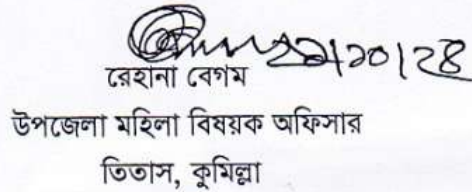 ২৯/১০/২৪
রেহানা বেগম
উপজেলা মহিলা বিষয়ক অফিসার
তিতাস, কুমিল্লা